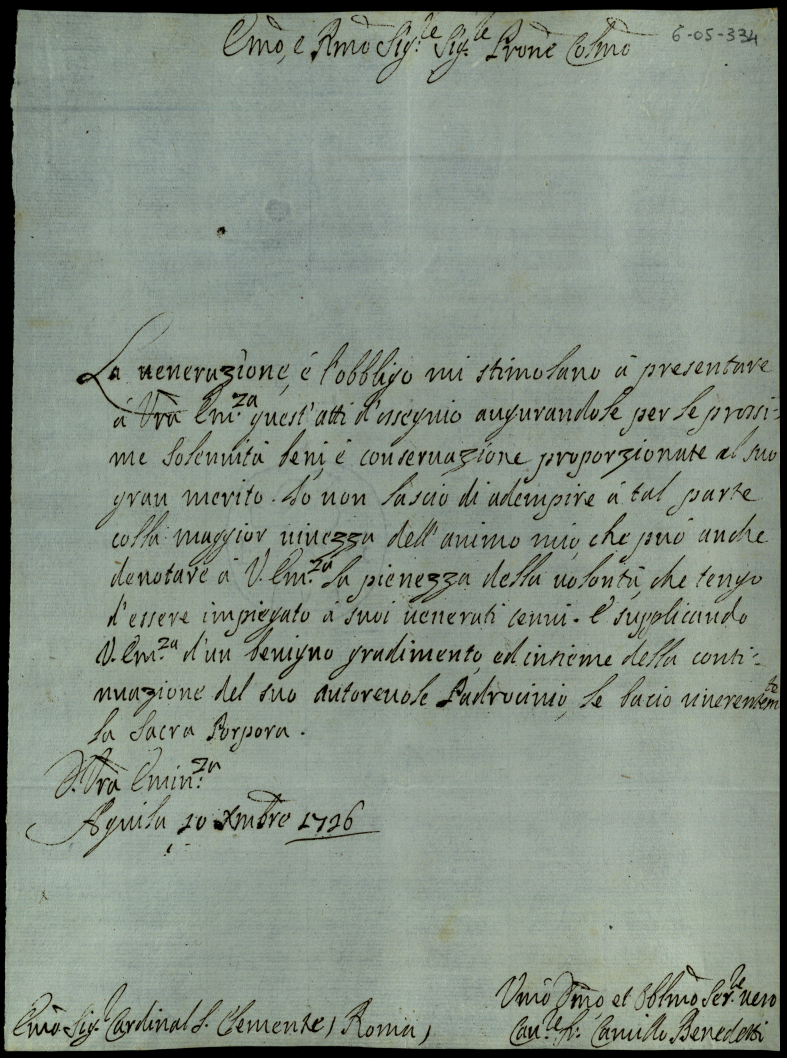 Emõ, e Rmõ Sig.re Sig.re Prone Colmõ
6-05-334
La venerazione, è l'obbligo mi stimolano à presentare
à Vrã Em.za quest'atti d'ossequio augurandole per le prossi-
me Solennità beni, è conservazione proporzionate al suo
gran merito. Io non lascio di adempire à tal parte
colla maggior vivezza dell'animo mio, che può anche
denotare à V. Em.za la pienezza della volontà, che tengo
d'essere impiegato à suoi venerati cenni. E' supplicando
V. Em.za d'un benigno gradimento, ed insieme della conti-
nuazione del suo autorevole Padrocinio, le bacio riverentem.te
la Sacra Porpora.
D. Vrã Emin.za
Aquila 10 Xmbrẽ 1726
Emõ Sig.r Cardinal S. Clemente, Roma,
Vmõ Dmõ et Obblmõ Ser.re vero
Cav.re Fr. Camillo Benedetti